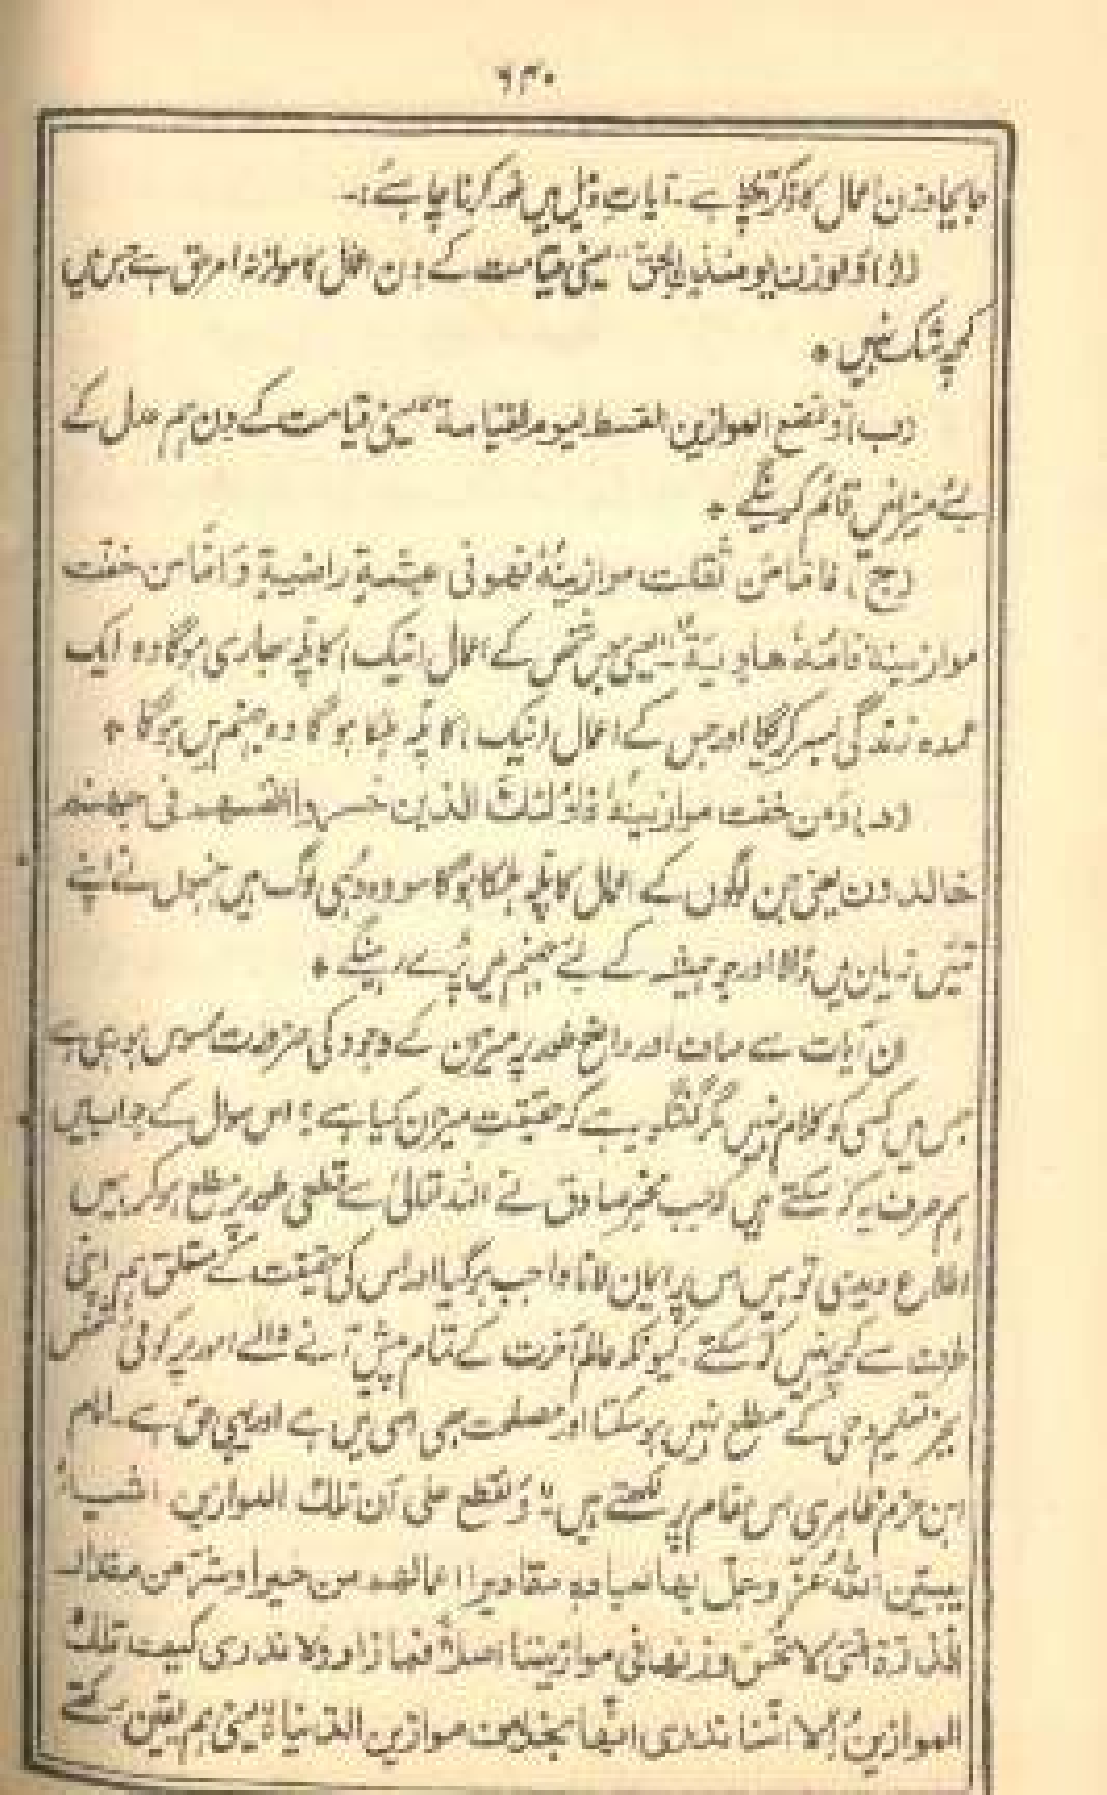 ۶۳۰
جابجا وزن اعمال کا ذکر آچکا ہے۔ آیات ذیل میں غور کرنا چاہئے:۔
(ا) وَالوزن یومئذ نِ الحق یعنی قیامت کے دن اعمال کا موازنہ امر حق ہے جس میں
کچھ شک نہیں *
(ب) وَنضع الموازین القسط لیوم القیامة یعنی قیامت کے دن ہم عدل کے
لئے میزانیں قائم کرینگے *
(ج) فامّا مَن ثقلت موازینُهٗ فهو فی عیشةٍ راضیةٍ وَامّا من خفت
موازینهٗ فامّهٗ هاویةٌ یعنی جس شخص کے اعمال (نیک) کا پلّہ بھاری ہوگا وہ ایک
عمدہ زندگی بسر کریگا اور جس کے اعمال (نیک) کا پلّہ ہلکا ہوگا وہ جہنم میں ہوگا *
(د) وَمن خفت موازینهٗ فاولٰئكَ الذین خسروا انفسهم فی جهنم
خالدون یعنی جن لوگوں کے اعمال کا پلّہ ہلکا ہوگا سو وہ وہی لوگ ہیں جنہوں نے اپنے
تئیں زیان میں ڈالا اور جو ہمیشہ کے لئے جہنم میں پڑے رہینگے *
ان آیات سے صاف اور واضح طور پر میزان کے وجود کی ضرورت محسوس ہو رہی ہے
جس میں کسی کو کلام نہیں مگر گفتگو یہ ہے کہ حقیقتِ میزان کیا ہے؟ اس سوال کے جواب میں
ہم صرف یہ کہہ سکتے ہیں کہ جب مخبرِ صادق نے اللہ تعالیٰ سے قطعی طور پر مطلع ہو کر ہمیں
اطلاع دیدی تو ہمیں اس پر ایمان لانا واجب ہوگیا اور اس کی حقیقت کے متعلق ہم اپنی
طرف سے کچھ نہیں کہہ سکتے۔ کیونکہ عالم آخرت کے تمام پیش آنے والے امور پر کوئی شخص
بجز تعلیم وحی کے مطلع نہیں ہو سکتا اور مصلحت بھی اسی میں ہے اور یہی حق ہے۔ امام
ابن حزم ظاہری اس مقام پر لکھتے ہیں: وَنقطع علی أن تلك الموازین اشیاءُ
یبیّن اللهُ عزّ وجلّ بها لعبادهٖ مقادیر اعمالهم من خیر او شرّ من مقدار
الذرّة التی لا تحسّ وزنها فی موازیننا اصلاً فما زاد ولا ندری کیف تلك
الموازینُ الّا انّنا ندری انّها بخلاف موازین الدّنیا یعنی ہم یقین رکھتے